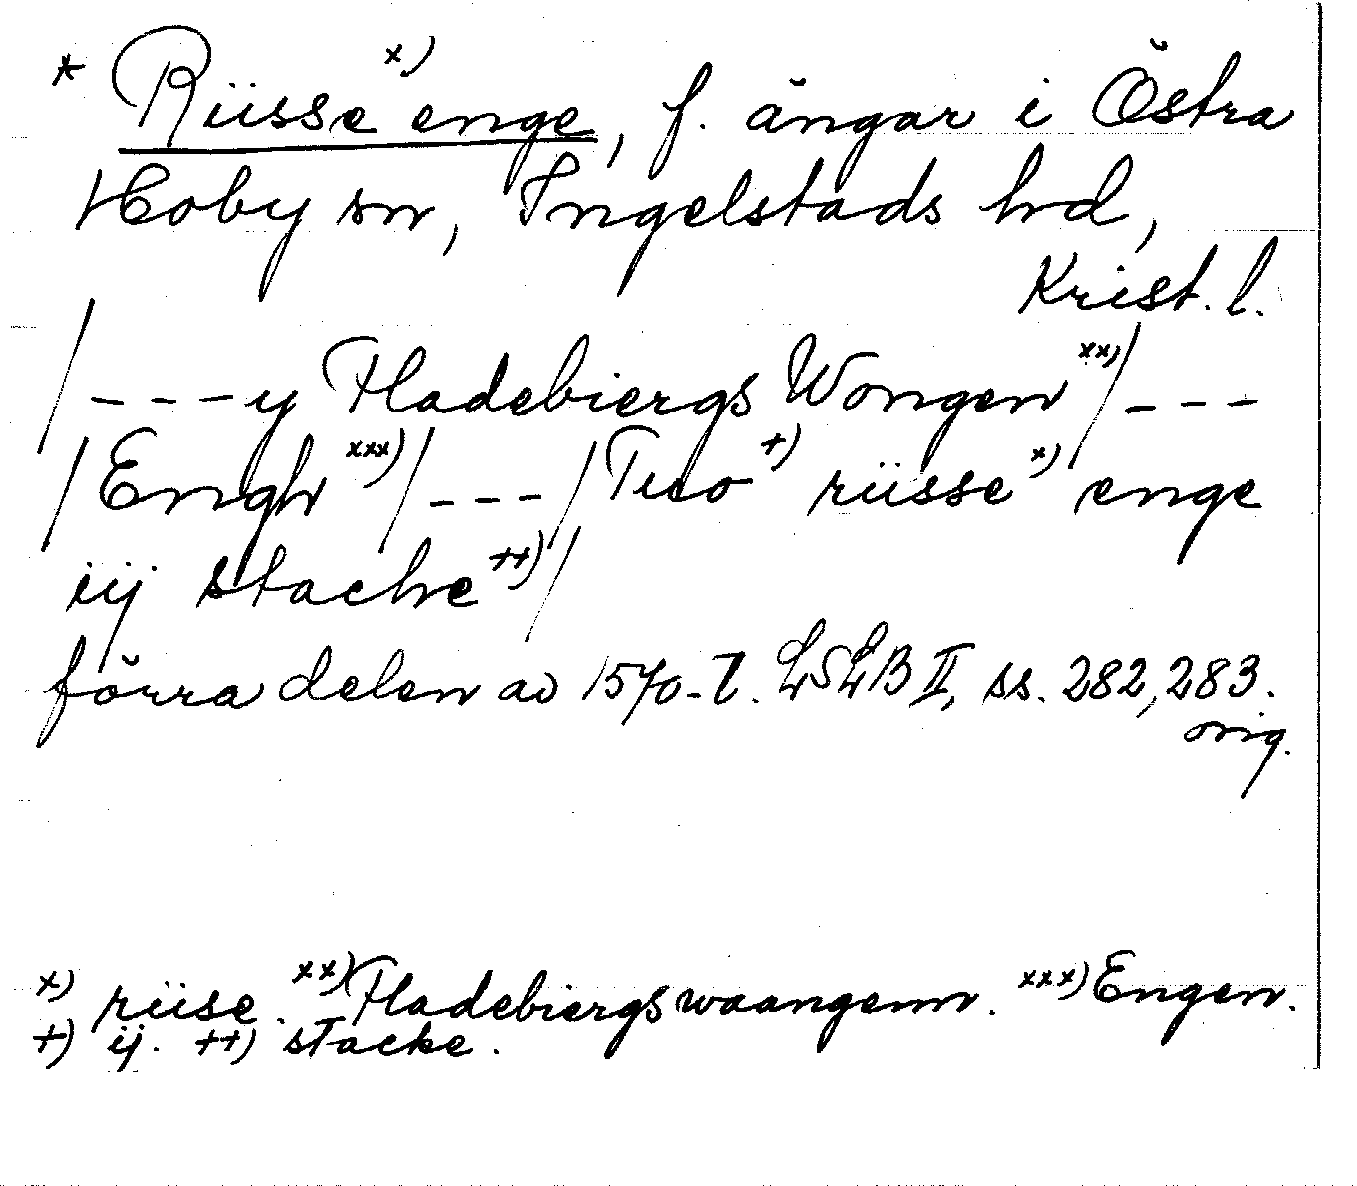 * Rüsse x) enge, f. ängar i Östra
Hoby sn, Ingelstads hd,
Krist. l.
/---y Fladebiergs Wongen xx)/---
/Enngh xxx)/---/Tuo +) rüsse x) enge
iij stache ++)/
förra delen av 1570-t. LSLB II, ss. 282, 283.
orig.
x) rüse. xx) Fladebiergs waangenn. xxx) Engen.
+) ij. ++) stacke.